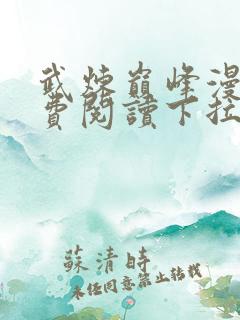 武煉巔峰漫
費閱讀下拉
蘇清時
未經同意禁止转载